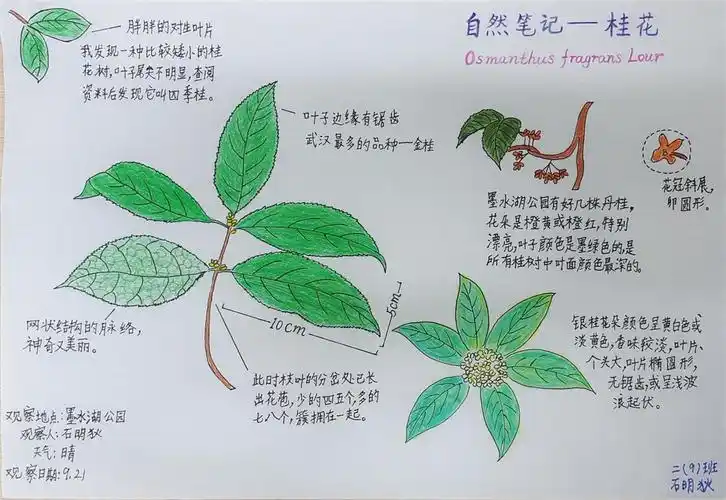 自然笔记——桂花
Osmanthus fragrans Lour
胖胖的对生叶片
我发现一种比较矮小的桂
花树,叶子尾尖不明显,查阅
资料后发现它叫四季桂。
叶子边缘有锯齿
武汉最多的品种—金桂
墨水湖公园有好几株丹桂,
花朵是橙黄或橙红,特别
漂亮,叶子颜色是墨绿色的,是
所有桂树中叶面颜色最深的。
花冠斜展,
卵圆形。
网状结构的脉络,
神奇又美丽。
10cm
5cm
此时枝叶的分岔处已长
出花苞,少的四五个,多的
七八个,簇拥在一起。
银桂花朵颜色呈黄白色或
淡黄色,香味较淡,叶片
个头大,叶片椭圆形,
无锯齿,或呈浅波
浪起伏。
观察地点:墨水湖公园
观察人:石明狄
天气:晴
观察日期:9.21
二(9)班
石明狄